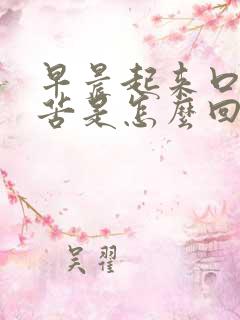 早晨起来口
苦是怎麽回
吴翟